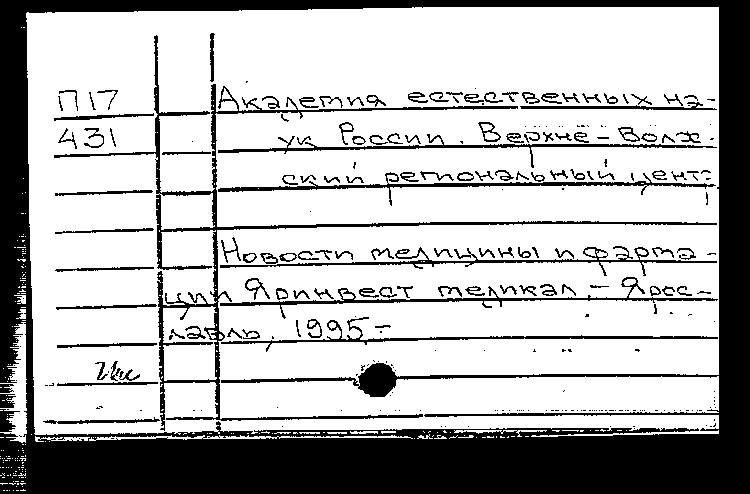 П17 Академия естественных на-
431 ук России. Верхне-Волж-
ский региональный центр
Новости медицины и фарма-
ции Яринвест медикал. - Ярос-
лавль, 1995 -